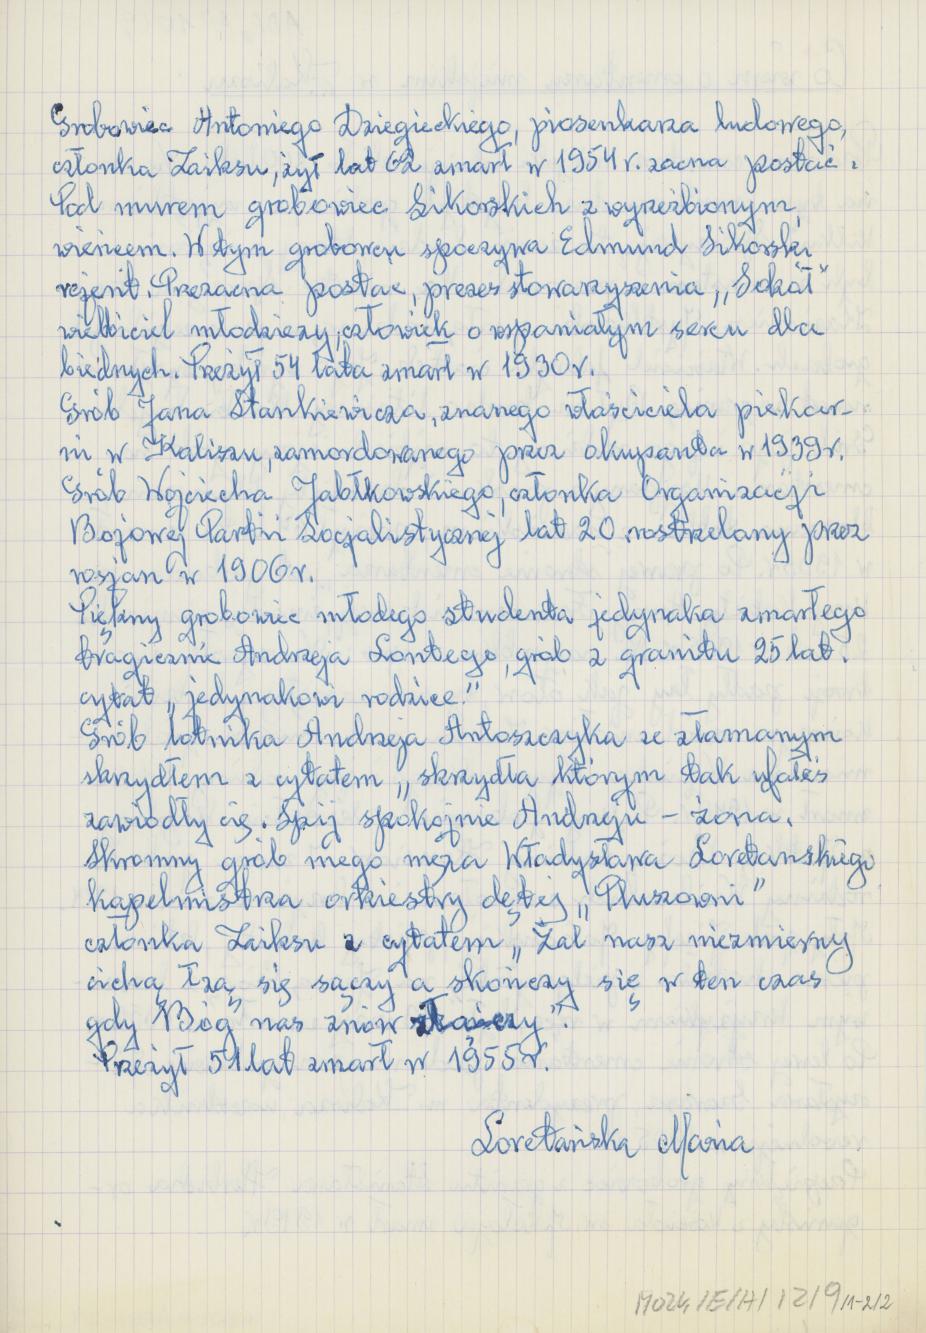 Grobowiec Antoniego Dziegieckiego, piosenkarza ludowego,
członka Zaiksu, żył lat 62 zmarł w 1954 r. zacna postać.
Pod murem grobowiec Sikorskich z wyrzeźbionym
wieńcem. W tym grobowcu spoczywa Edmund Sikorski
rejent. Przezacna postać, prezes stowarzyszenia „Sokół”
wielbiciel młodzieży, człowiek o wspaniałym sercu dla
biednych. Przeżył 54 lata zmarł w 1930 r.
Grób Jana Stankiewicza, znanego właściciela piekar-
ni w Kaliszu, zamordowanego przez okupanta w 1939 r.
Grób Wojciecha Jabłkowskiego, członka Organizacji
Bojowej Partii Socjalistycznej lat 20 rostrzelany przez
rosjan w 1906 r.
Piękny grobowiec młodego studenta jedynaka zmarłego
tragicznie Andrzeja Lontego, grób z granitu 25 lat.
cytat „jedynakowi rodzice.”
Grób lotnika Andrzeja Antoszczyka ze złamanym
skrzydłem z cytatem „skrzydła którym tak ufałeś
zawiodły cię. Śpij spokojnie Andrzeju – żona.
Skromny grób mego męża Władysława Loretańskiego
kapelmistrza orkiestry dętej „Pluszowni”
członka Zaiksu z cytatem „Żal nasz niezmierny
cichą łzą się sączy a skończy się w ten czas
gdy Bóg nas znów złączy”.
Przeżył 51 lat zmarł w 1955 r.
Loretańska Maria
MOZK/E/A/12/9/1-2/2